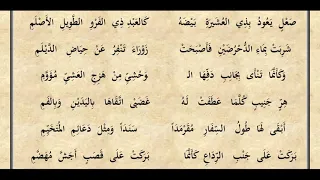 صَعْلٍ يَعُودُ بِذِي العُشَيْرَةِ بَيْضَهُ كَالعَبْدِ ذِي الفَرْوِ الطَّوِيلِ الأَصْلَمِ
شَرِبَتْ بِمَاءِ الدُّحْرُضَيْنِ فَأَصْبَحَتْ زَوْرَاءَ تَنْفِرُ عَنْ حِيَاضِ الدَّيْلَمِ
وَكَأَنَّمَا تَنْأَى بِجَانِبِ دَفِّهَا الـ وَحْشِيِّ مِنْ هَزِجِ العَشِيِّ مُؤَوَّمِ
هِرٍّ جَنِيبٍ كُلَّمَا عَطَفَتْ لَهُ غَضْبَى اتَّقَاهَا بِاليَدَيْنِ وَبِالفَمِ
أَبْقَى لَهَا طُولُ السِّفَارِ مُقَرْمَدَاً سَنَدَاً وَمِثْلَ دَعَائِمِ المُتَخَيِّمِ
بَرَكَتْ عَلَى جَنْبِ الرِّدَاعِ كَأَنَّمَا بَرَكَتْ عَلَى قَصَبٍ أَجَشَّ مُهَضَّمِ